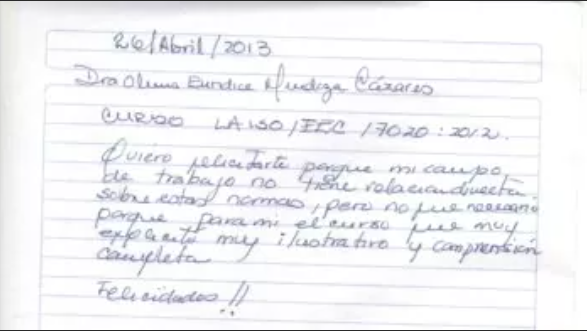 26/Abril/2013
Dra Olema Eundice Mendoza Cázares
CURSO LA ISO/IEC 17020:2012.
Quiero felicitarte porque mi campo
de trabajo no tiene relación directa
sobre estas normas, pero no fue necesario
porque para mi el curso fue muy
explicito muy ilustrativo y comprensión
completa
Felicidades !!